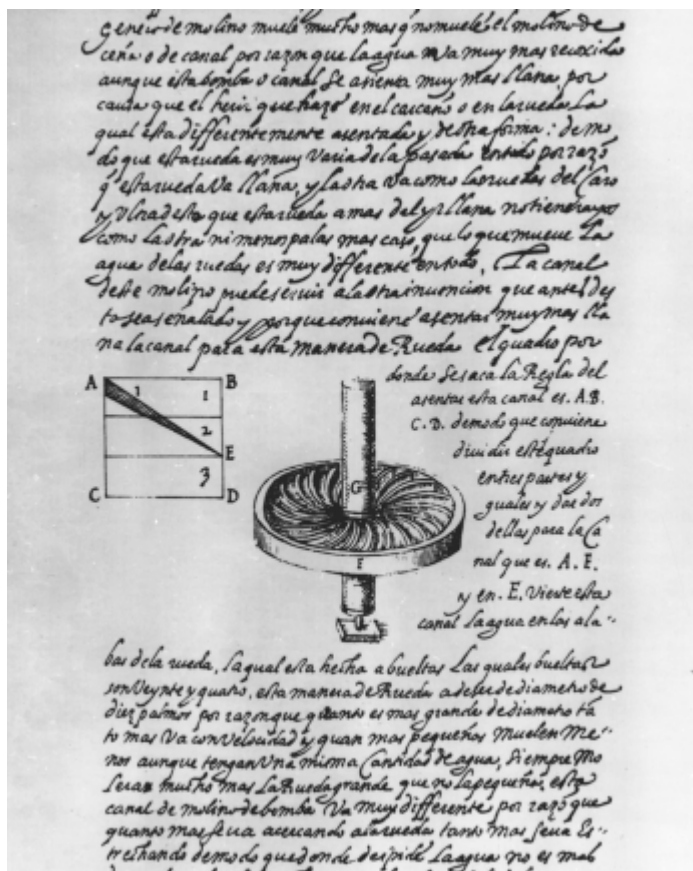 genero de molino muele mucho mas q̃ no muele el molino de
cena o de canal por razon que la agua va muy mas recoxida
aunque esta bomba o canal se asienta muy mas llana, por
causa que el herir que haze en el carcano o en la rueda. La
qual esta differentemente asentada y de otra forma: de mo
do que esta rueda es muy varia de la pasada en todo por razõ
q̃ esta rueda va llana, y la otra va como las ruedas del Caro
y ultra desto que esta rueda a mas del yr llana no tiene rayos
como la otra ni menos palas mas caso, que lo que mueve la
agua de las ruedas es muy differente en todo, La canal
deste molino puede seruir a la otra inuencion que antes des
to se a señalado y porque conviene asentar muy mas lla
na la canal para esta manera de Rueda el quadro por
donde se saca la Regla del
asentar esta canal es. A.B.
C.D. de modo que conviene
dividir este quadro
en tres partes y
guales y dar dos
dellas para la Ca
nal que es. A. E.
y en. E. Vierte esta
canal la agua en los ala-
A B
1 1
2
E
3
C D
G
F
bes de la rueda, la qual esta hecha a bueltas Las quales bueltas
son Veynte y quatro, esta manera de Rueda a de ser de diametro de
diez palmos por razon que quanto es mas grande de diametro tã
to mas va con velocidad y quan mas pequeños muelen Me
nos aunque tengan Una misma Cantidad de agua, Siempre Mo
lera mucho mas La Rueda grande que no la pequeña, esta
canal de molino de bomba Va muy differente por razõ que
quanto mas se va acercando a la rueda tanto mas se va Es-
trechando de modo que donde despide La agua no es mas